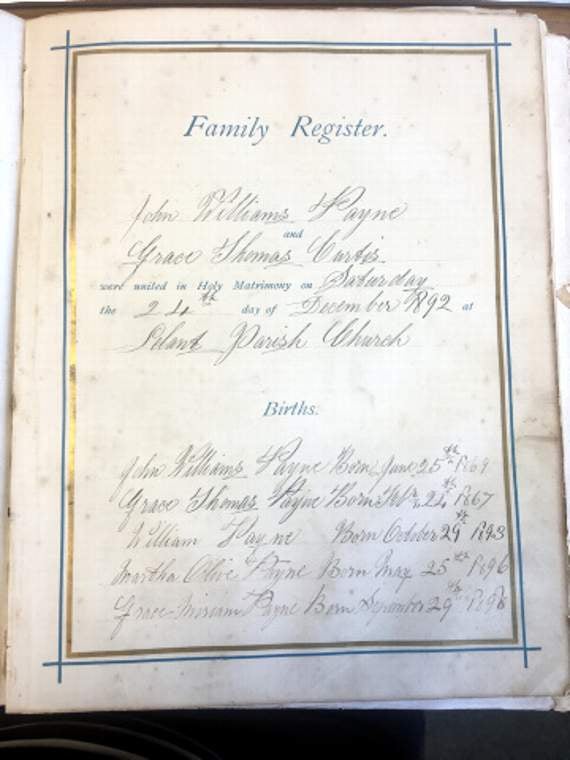 Family Register.
John Williams Payne
and
Grace Thomas Curtis
were united in Holy Matrimony on Saturday
the 24th day of December 1892 at
Pelant Parish Church
Births.
John Williams Payne Born June 25th 1869
Grace Thomas Payne Born 24th 1867
William Payne Born October 29th 1893
Martha Olive Payne Born May 25th 1896
Grace Miriam Payne Born September 29th 1898